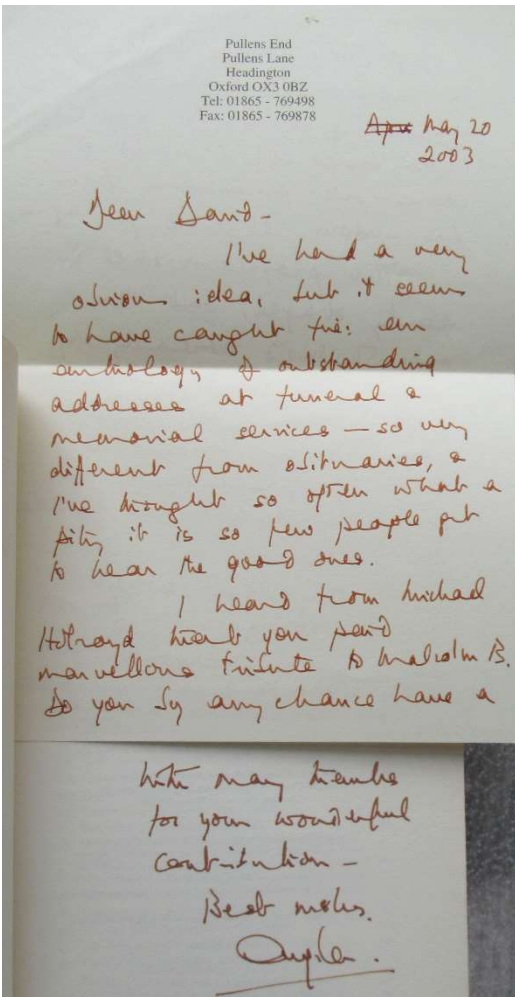 Pullens End
Pullens Lane
Headington
Oxford OX3 0BZ
Tel: 01865 - 769498
Fax: 01865 - 769878
May 20
2003
Dear David -
I've had a very
obvious idea, but it seems
to have caught fire: an
anthology of outstanding
addresses at funeral &
memorial services - so very
different from obituaries, &
I've thought so often what a
pity it is so few people get
to hear the good ones.
I heard from Michael
Holroyd that you paid
marvellous tribute to Malcolm B.
Do you by any chance have a
With many thanks
for your wonderful
contribution -
Best wishes.